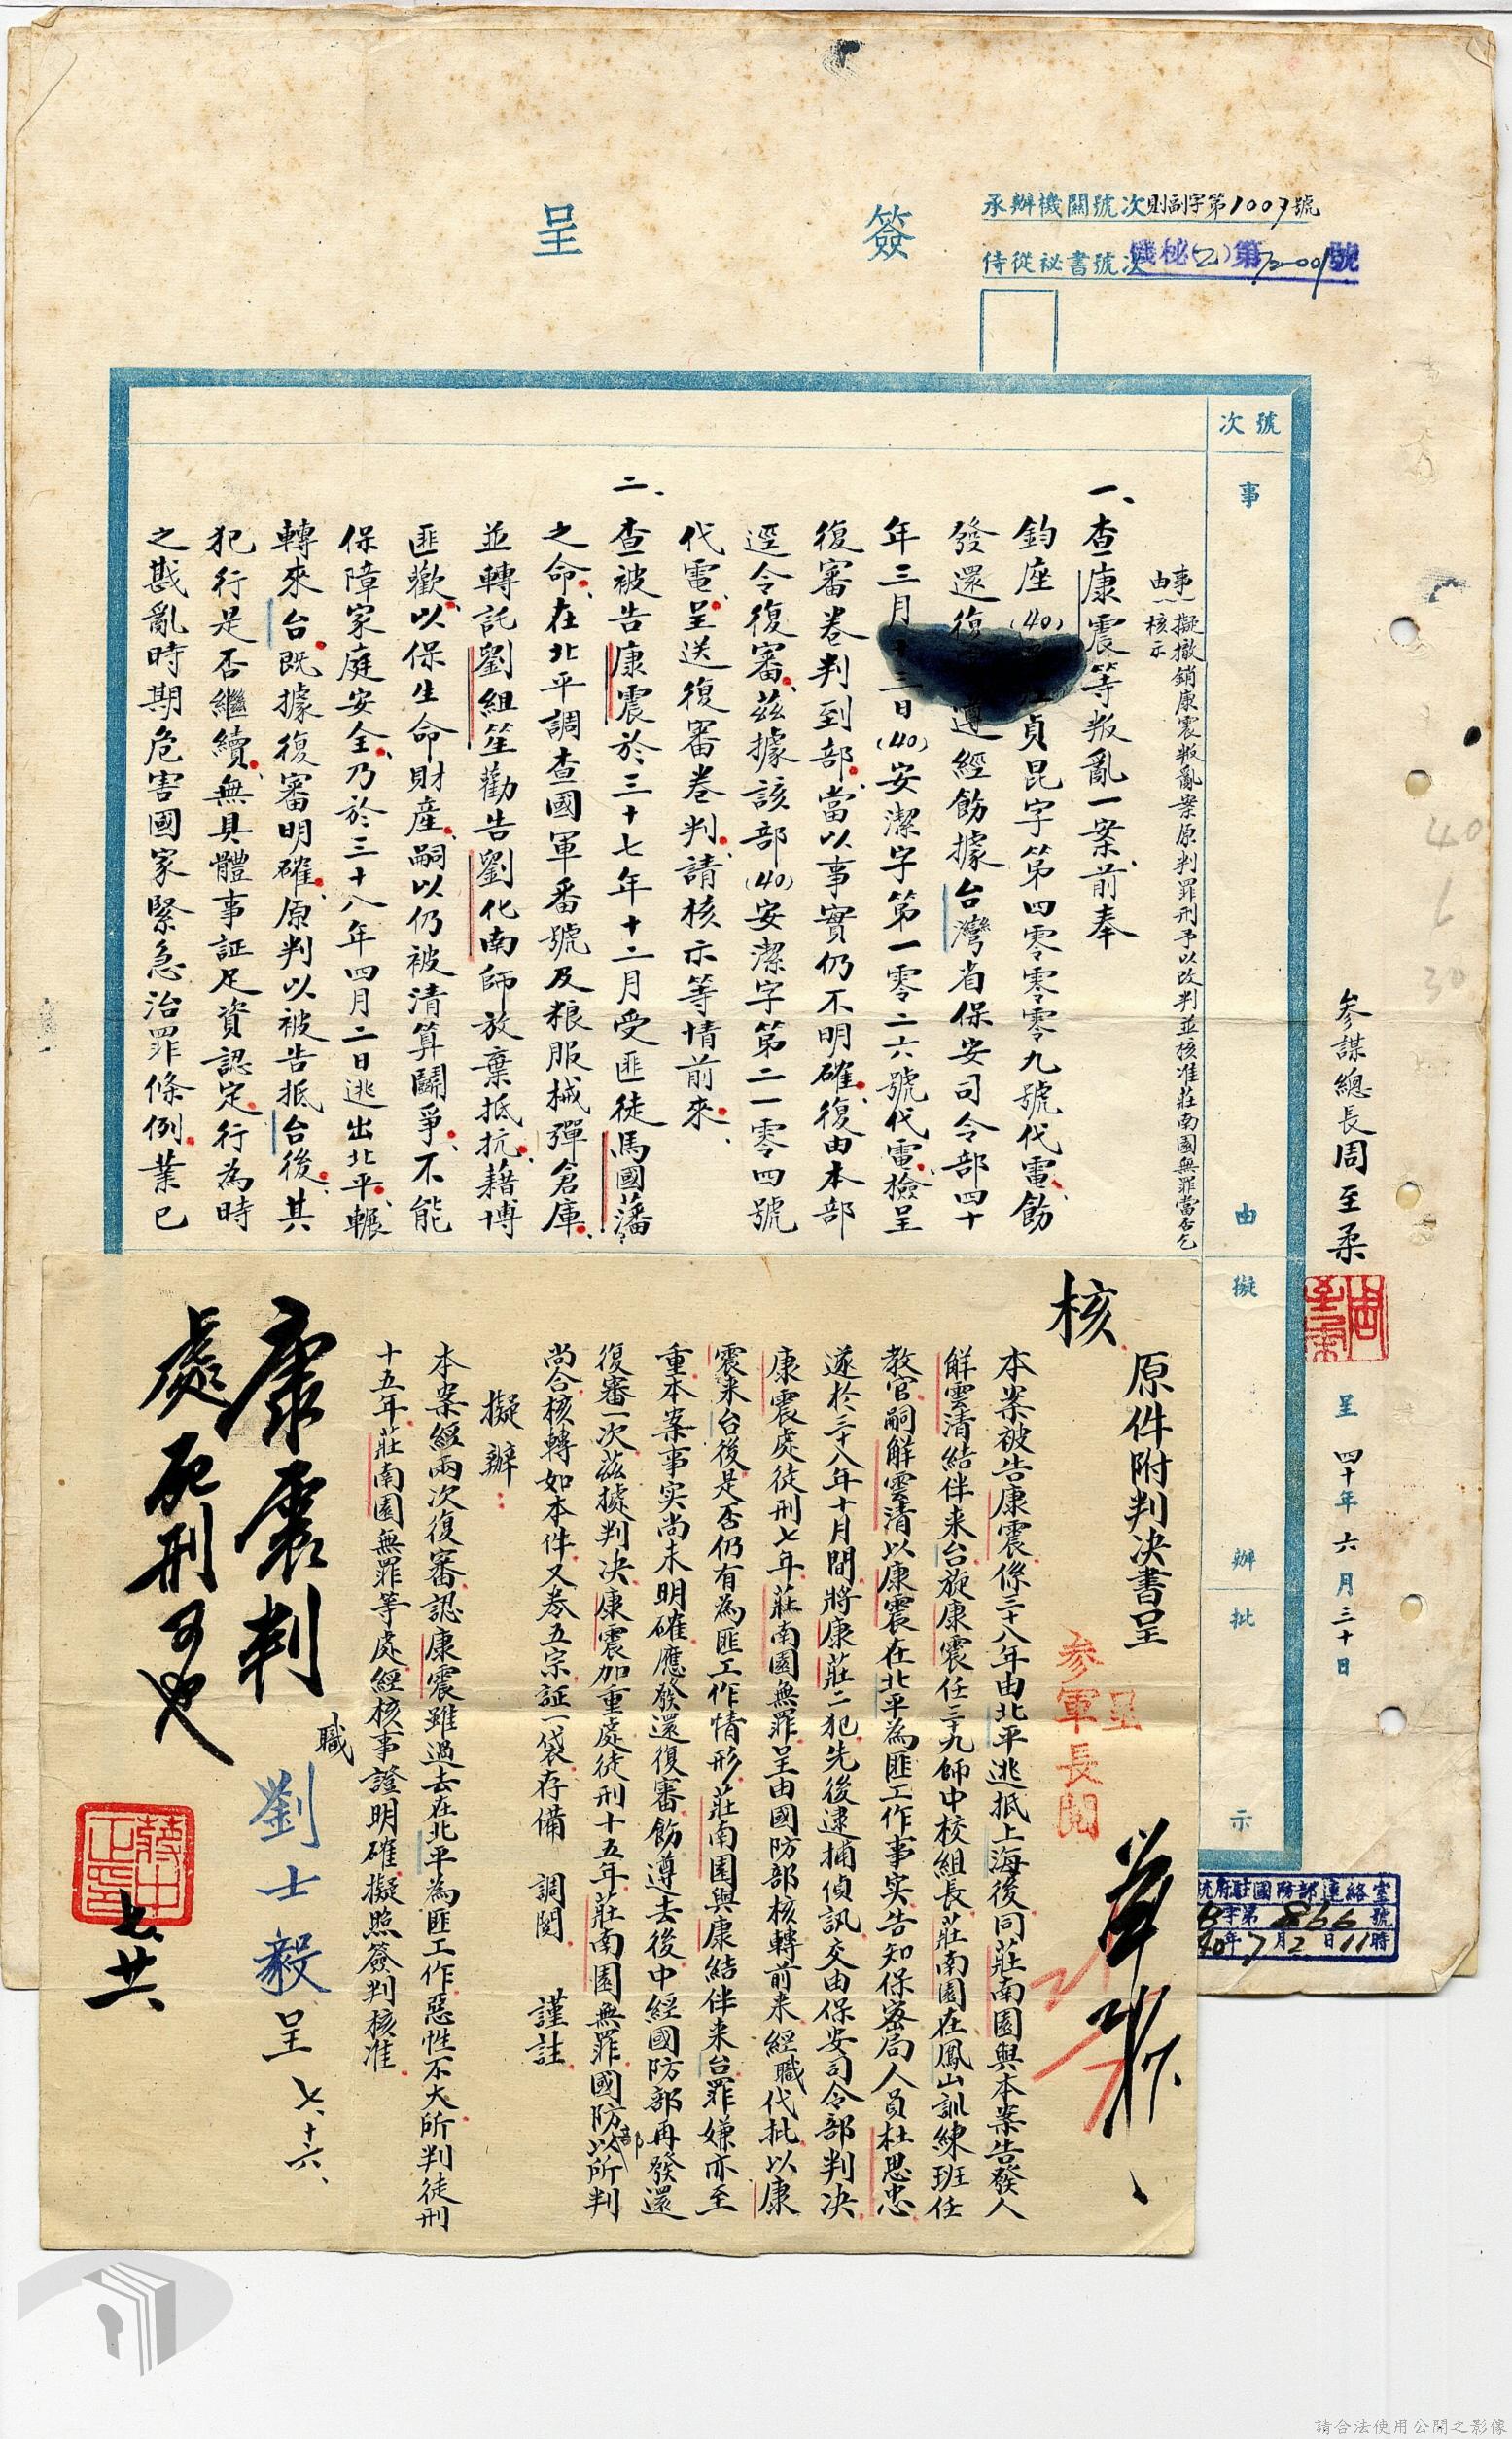 簽呈
承辦機關號次則副字第1007號
侍從祕書號次機秘(乙)第72-001號
號次
事由
擬辦
批示
參謀總長周至柔 呈 四十年六月三十日
40
6
30
事由：擬撤銷康震叛亂案原判罪刑予以改判並核准莊南園無罪當否乞
核示
一、查康震等叛亂一案前奉
鈞座(40) 貞昆字第四零零零九號代電飭
發還復 遵經飭據台灣省保安司令部四十
年三月 三日(40)安潔字第一零二六號代電檢呈
復審卷判到部當以事實仍不明確復由本部
逕令復審茲據該部(40)安潔字第二一零四號
代電呈送復審卷判請核示等情前來
二、查被告康震於三十七年十二月受匪徒馬國藩
之命在北平調查國軍番號及粮服械彈倉庫
並轉託劉組笙勸告劉化南師放棄抵抗藉博
匪歡以保生命財產嗣以仍被清算鬪爭不能
保障家庭安全乃於三十八年四月二日逃出北平輾
轉來台既據復審明確原判以被告抵台後其
犯行是否繼續無具體事証足資認定行為時
之戡亂時期危害國家緊急治罪條例業已
核
原件附判決書呈
呈
參軍長閱
本案被告康震係三十八年由北平逃抵上海後同莊南園與本案告發人
解雲清結伴来台旋康震任三十九師中校組長莊南園在鳳山訓練班任
教官嗣解雲清以康震在北平為匪工作事实告知保密局人員杜思忠
遂於三十八年十月間將康莊二犯先後逮捕偵訊交由保安司令部判決
康震處徒刑七年莊南園無罪呈由國防部核轉前來經職代批以康
震来台後是否仍有為匪工作情形莊南園與康結伴来台罪嫌亦至
重本案事实尚未明確應發還復審飭遵去後中經國防部再發還
復審一次茲據判決康震加重處徒刑十五年莊南園無罪國防部以所判
尚合核轉如本件又卷五宗証一袋存備 調閱 謹註
擬辦：
本案經兩次復審認康震雖過去在北平為匪工作惡性不大所判徒刑
十五年莊南園無罪等處經核事證明確擬照簽判核准
職 劉士毅 呈 七、十六、
康震判
處死刑可也
蔣中正印
七、廿六
總統府駐國防部連絡室
字第866號
40年7月2日11時
請合法使用公開之影像